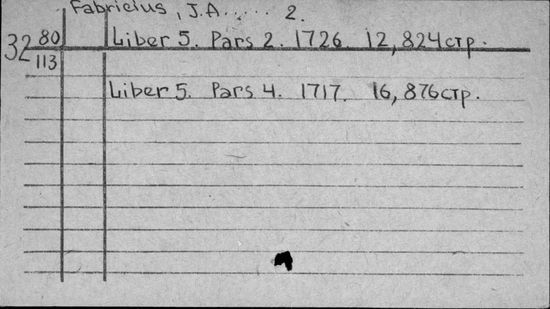 Fabricius, J.A..... 2.
32 80/113 Liber 5. Pars 2. 1726 12, 824стр.
Liber 5. Pars 4. 1717. 16, 876стр.